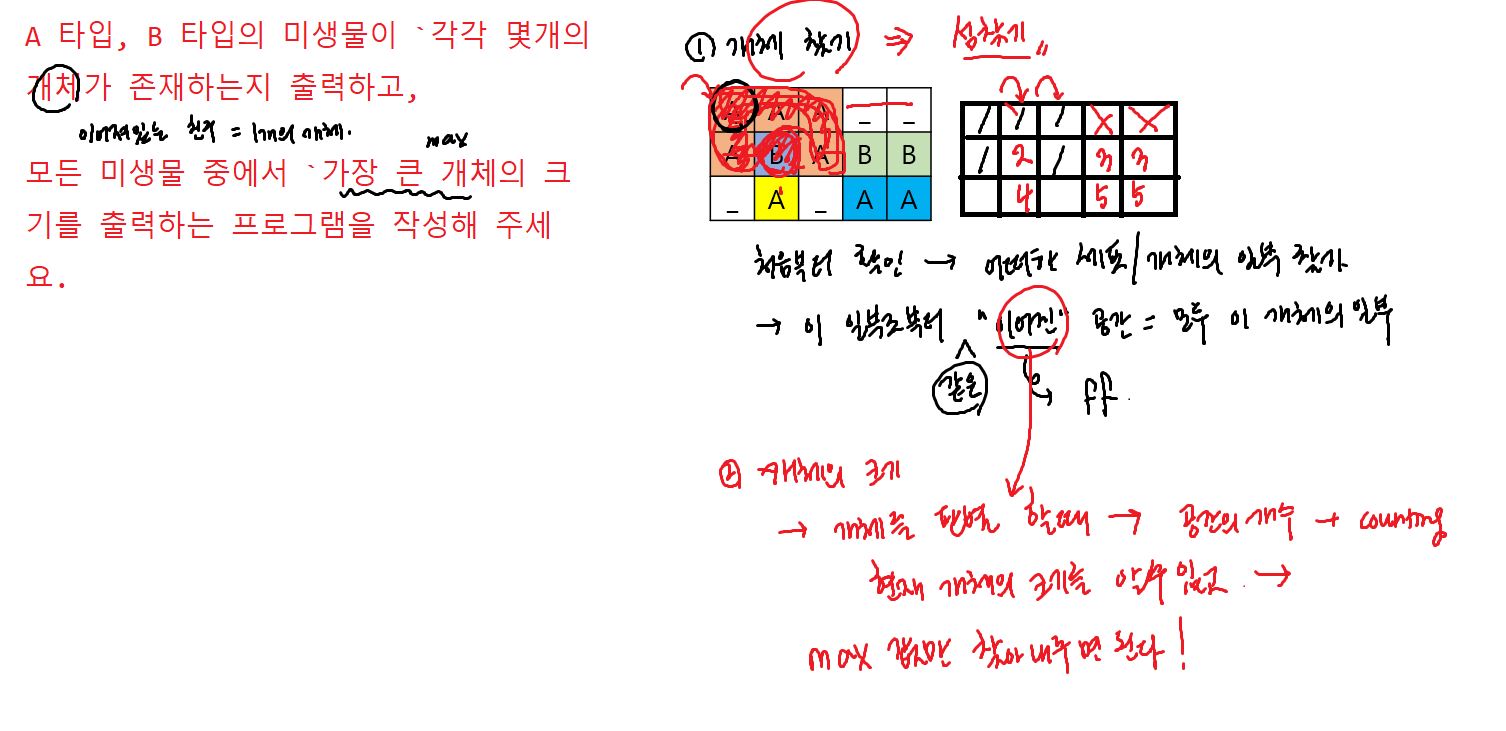 A 타입, B 타입의 미생물이 `각각 몇개의
개체가 존재하는지 출력하고,
이어져있는 친구 = 1개의 개체.
max
모든 미생물 중에서 `가장 큰 개체의 크
기를 출력하는 프로그램을 작성해 주세
요.
① 개체 찾기 ⇒ 섬찾기 "
A A A _ _
A B A B B
_ A _ A A
1 1 1 X X
1 2 1 3 3
4 5 5
처음부터 확인 → 어떠한 세포/개체의 일부 찾자
→ 이 일부로부터 "이어진" 공간 = 모두 이 개체의 일부
같은
ff.
② 개체의 크기
→ 개체를 판별 할때 → 공간의 개수 → counting
현재 개체의 크기를 알수 있고. →
max 값만 찾아내주면 된다!